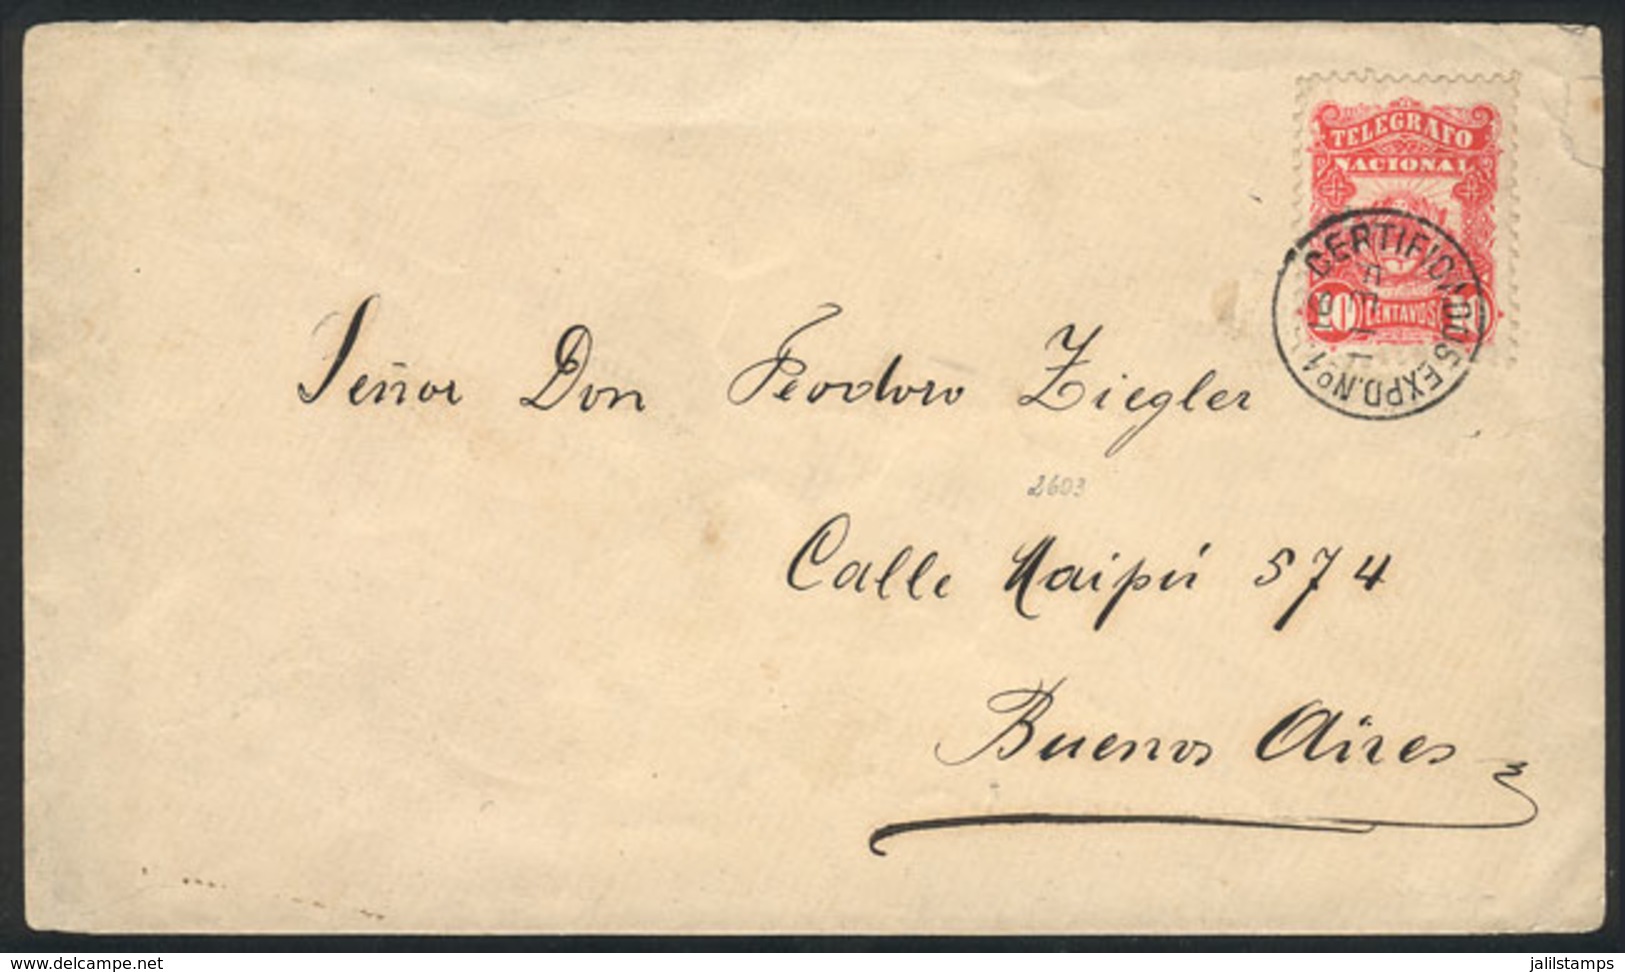 TELEGRAFO
NACIONAL
CENTAVOS
CERTIFICADOS EXPD. Nº1
Señor Don Teodoro Ziegler
2603
Calle Maipú 574
Buenos Aires
www.delcampe.net
jalilstamps